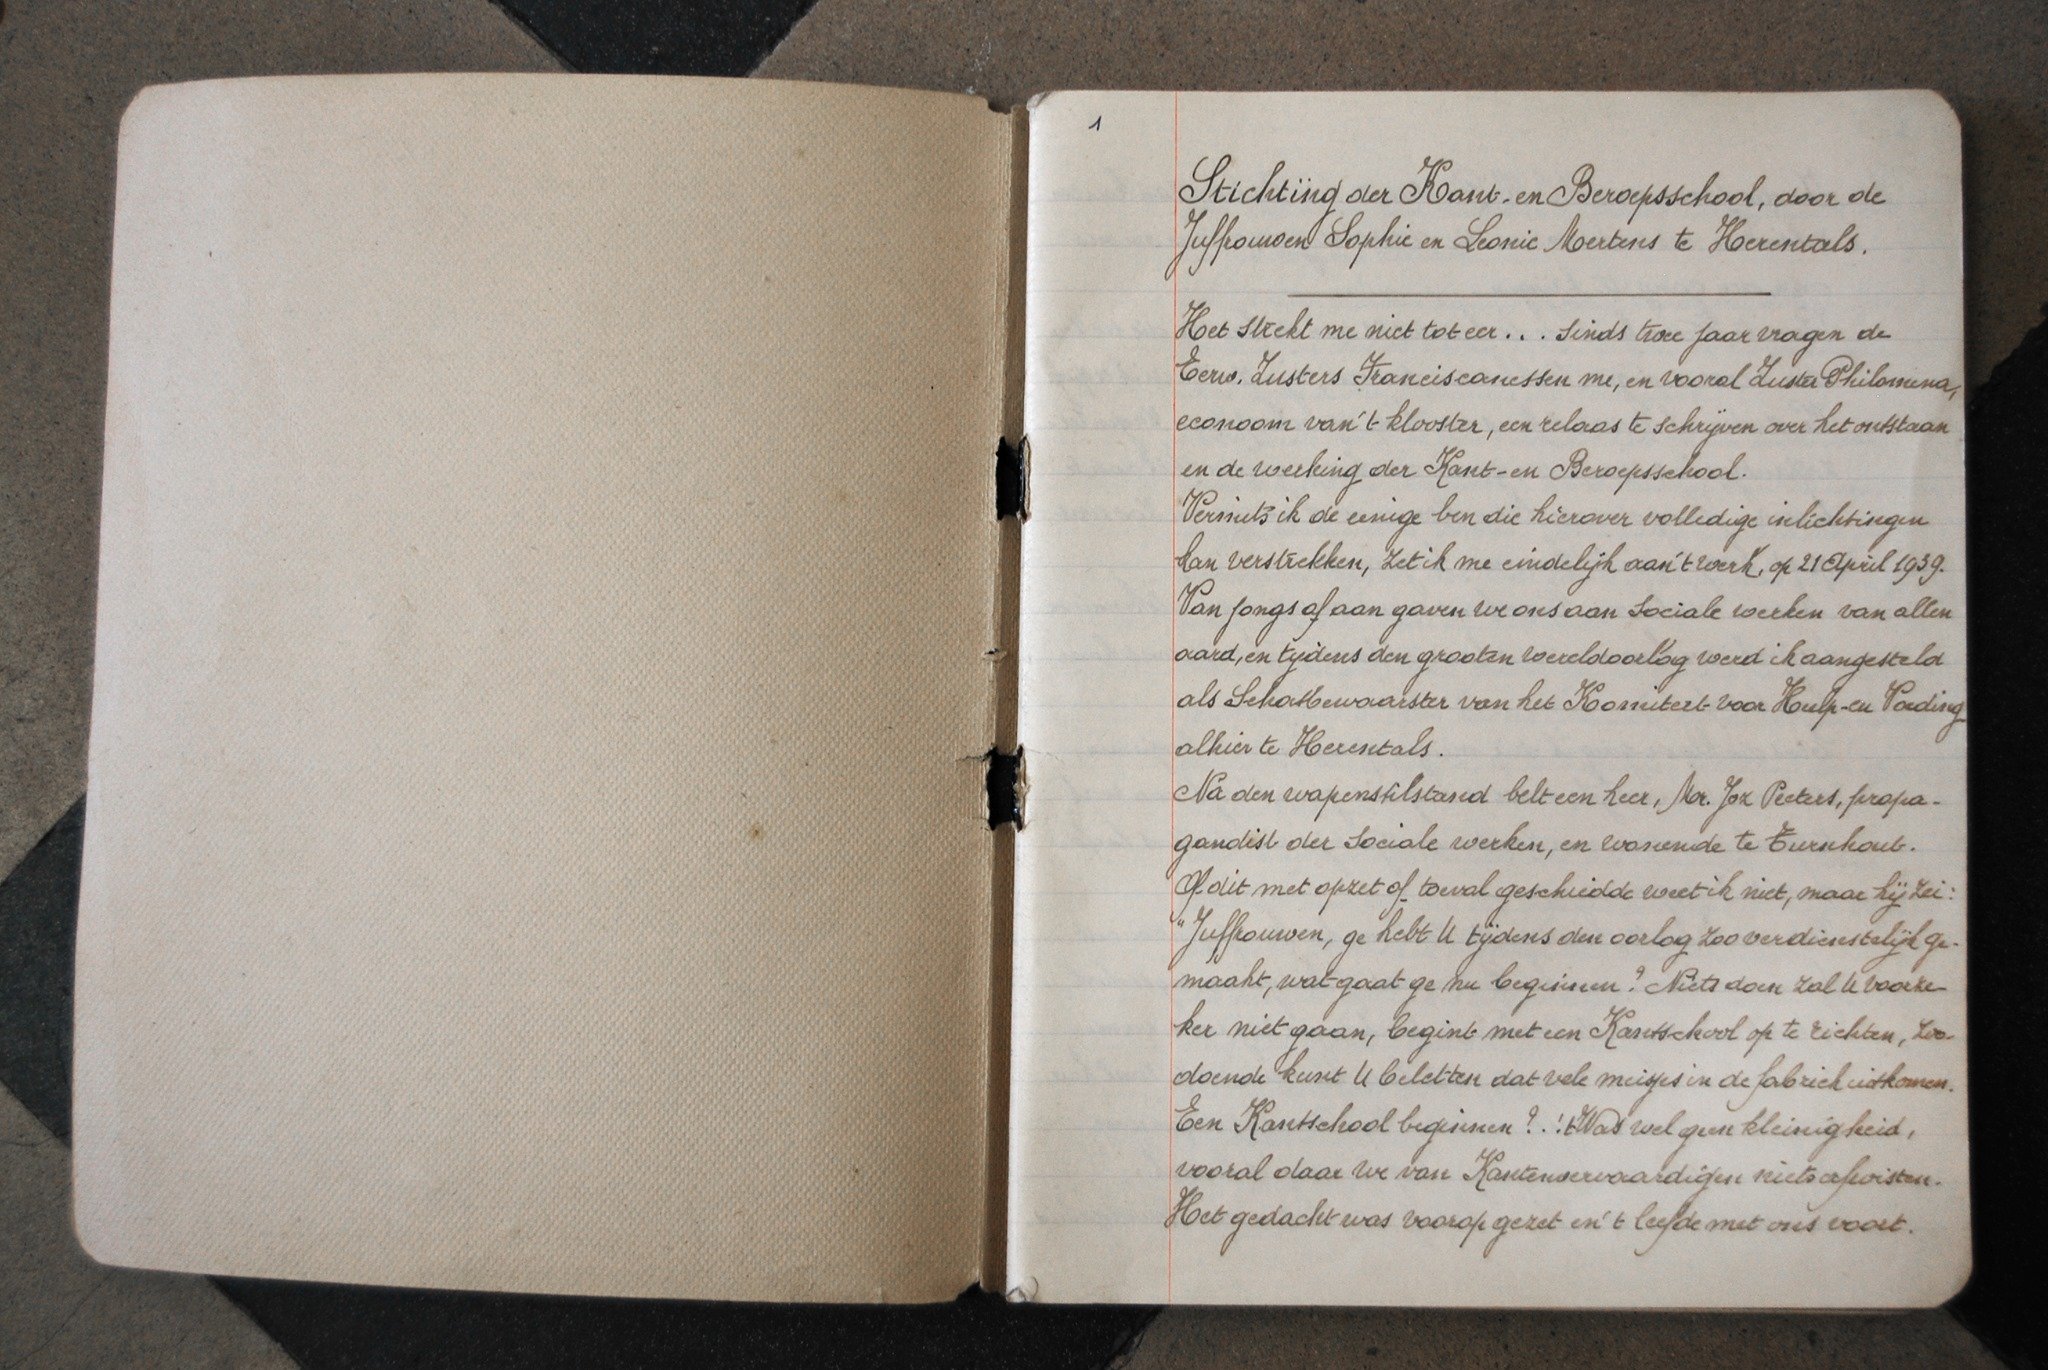 1
Stichting der Kant- en Beroepsschool, door de
Juffrouwen Sophie en Leonie Mertens te Herentals.
Het strekt me niet tot eer... Sinds twee jaar vragen de
Eerw. Zusters Franciscanessen me, en vooral Zuster Philomena,
econoom van 't klooster, een relaas te schrijven over het ontstaan
en de werking der Kant- en Beroepsschool.
Vermits ik de eenige ben die hierover volledige inlichtingen
kan verstrekken, zet ik me eindelijk aan 't werk, op 21 April 1939.
Van jongs af aan gaven we ons aan Sociale werken van allen
aard, en tijdens den grooten wereldoorlog werd ik aangesteld
als Schatbewaarster van het Komiteet voor Hulp- en Voeding
alhier te Herentals.
Na den wapenstilstand belt een heer, Mr. Joz Peeters, propa-
gandist der Sociale werken, en wonende te Turnhout.
Of dit met opzet of toeval geschiedde weet ik niet, maar hij zei:
"Juffrouwen, ge hebt U tijdens den oorlog zoo verdienstelijk ge-
maakt, wat gaat ge nu beginnen? Niets doen zal U voorze-
ker niet gaan, begint met een Kantschool op te richten, zoo-
doende kunt U beletten dat vele meisjes in de fabriek uitkomen.
Een Kantschool beginnen?..'t Was wel geen kleinigheid,
vooral daar we van Kantenvervaardigen niets afwisten.
Het gedacht was voorop gezet en 't leefde met ons voort.